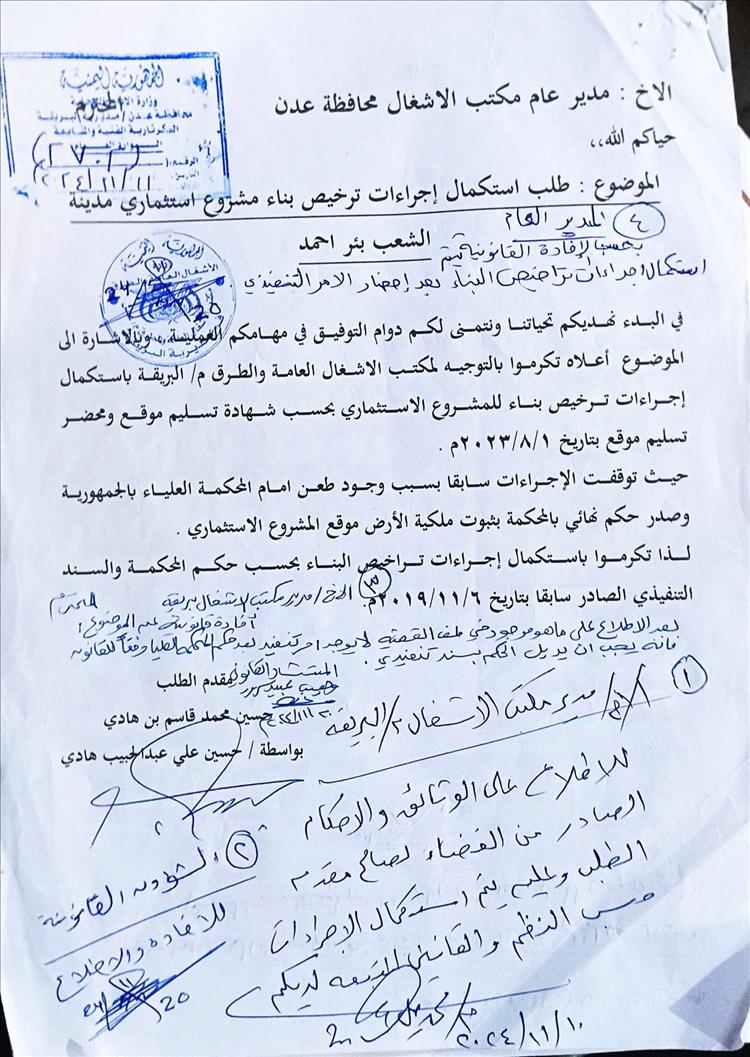 الجمهورية اليمنية
محافظة عدن / مديرية البريقة
(٢٧٠٢)
٢٠٢٤/١١/١١
الاخ : مدير عام مكتب الاشغال محافظة عدن المحترم
حياكم الله،،
الموضوع : طلب استكمال إجراءات ترخيص بناء مشروع استثماري مدينة
الشعب بئر احمد
٤ المدير العام
بحسب الإفادة القانونية يتم
استكمال اجراءات تراخيص البناء بعد إحضار الامر التنفيذي
في البدء نهديكم تحياتنا ونتمنى لكم دوام التوفيق في مهامكم العملية وبالاشارة الى
الموضوع أعلاه تكرموا بالتوجيه لمكتب الاشغال العامة والطرق م/ البريقة باستكمال
إجراءات ترخيص بناء للمشروع الاستثماري بحسب شهادة تسليم موقع ومحضر
تسليم موقع بتاريخ ٢٠٢٣/٨/١م .
حيث توقفت الإجراءات سابقا بسبب وجود طعن امام المحكمة العلياء بالجمهورية
وصدر حكم نهائي بالمحكمة بثبوت ملكية الأرض موقع المشروع الاستثماري .
لذا تكرموا باستكمال إجراءات تراخيص البناء بحسب حكم المحكمة والسند
التنفيذي الصادر سابقا بتاريخ ٢٠١٩/١١/٦م.
٣ الاخ/ مدير مكتب الاشغال بريقة المحترم
افادة قانونية عن الموضوع:
بعد الاطلاع على ماهو موجود في ملف القضية لا يوجد امر تنفيذ بعد حكم المحكمة العليا وفقاً للقانون
فانه يجب ان يذيل الحكم بسند تنفيذي.
المستشار القانوني
مقدم الطلب
حسين محمد قاسم بن هادي
بواسطة / حسين علي عبدالحبيب هادي
١ الاخ/ مدير مكتب الاشغال م/ البريقة
للاطلاع على الوثائق والاحكام
الصادر من القضاء لصالح مقدم
الطلب وعليه يتم استكمال الاجراءات
حسب النظم والقوانين المتبعه لديكم
٢٠٢٤/١١/١٠
٢ الشؤون القانونية
للافادة والاطلاع